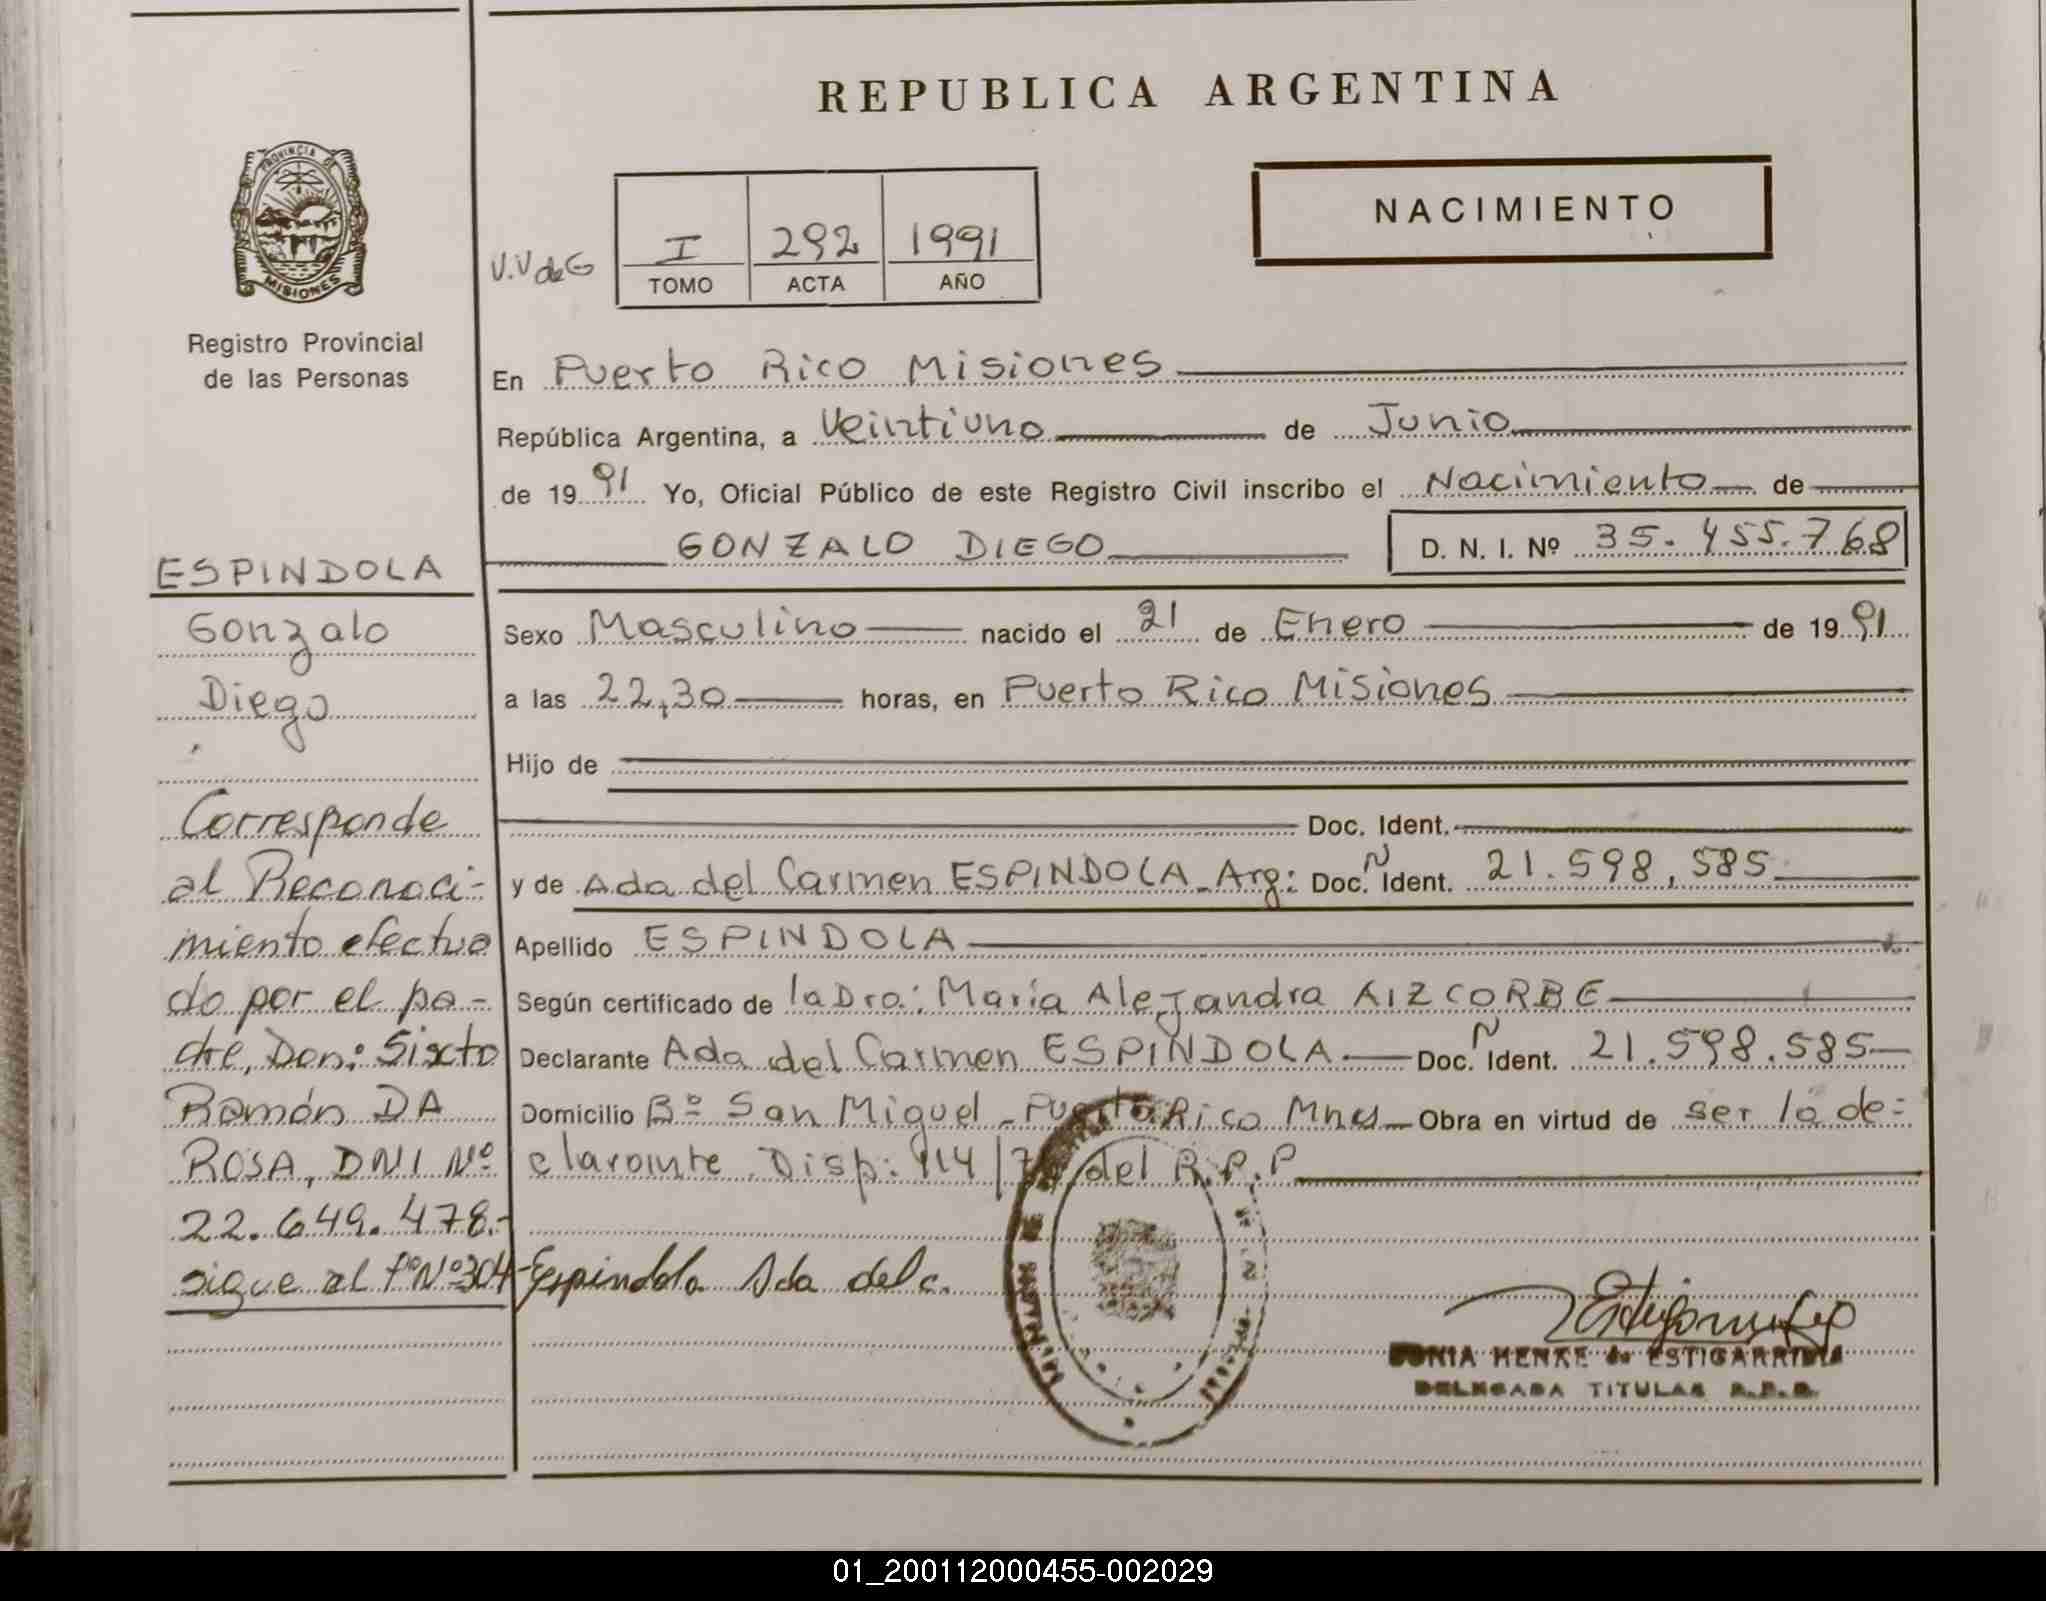 REPUBLICA ARGENTINA
PROVINCIA DE
MISIONES
Registro Provincial
de las Personas
NACIMIENTO
V.V de G
I 292 1991
TOMO ACTA AÑO
En Puerto Rico Misiones
República Argentina, a Veintiuno de Junio
de 1991 Yo, Oficial Público de este Registro Civil inscribo el Nacimiento de
GONZALO DIEGO D. N. I. Nº 35.455.768
Sexo Masculino nacido el 21 de Enero de 1991
a las 22,30 horas, en Puerto Rico Misiones
Hijo de
Doc. Ident.
y de Ada del Carmen ESPINDOLA - Arg: Doc. Ñ Ident. 21.598,585
Apellido ESPINDOLA
Según certificado de la Dra: María Alejandra AIZCORBE
Declarante Ada del Carmen ESPINDOLA Doc. Ñ Ident. 21.598.585
Domicilio Bº San Miguel - Puerto Rico Mnes Obra en virtud de ser la de-
clarante. Disp: 114/ del R.P.P
Espindola Ada del c.
SONIA HENKE de ESTIGARRIBIA
DELEGADA TITULAR R.P.P.
ESPINDOLA
Gonzalo
Diego
Corresponde
al Reconoci-
miento efectua
do por el pa-
dre, Don: Sixto
Ramón DA
ROSA, DNI Nº
22.649.478.-
sigue al Fº Nº 304-
01_200112000455-002029